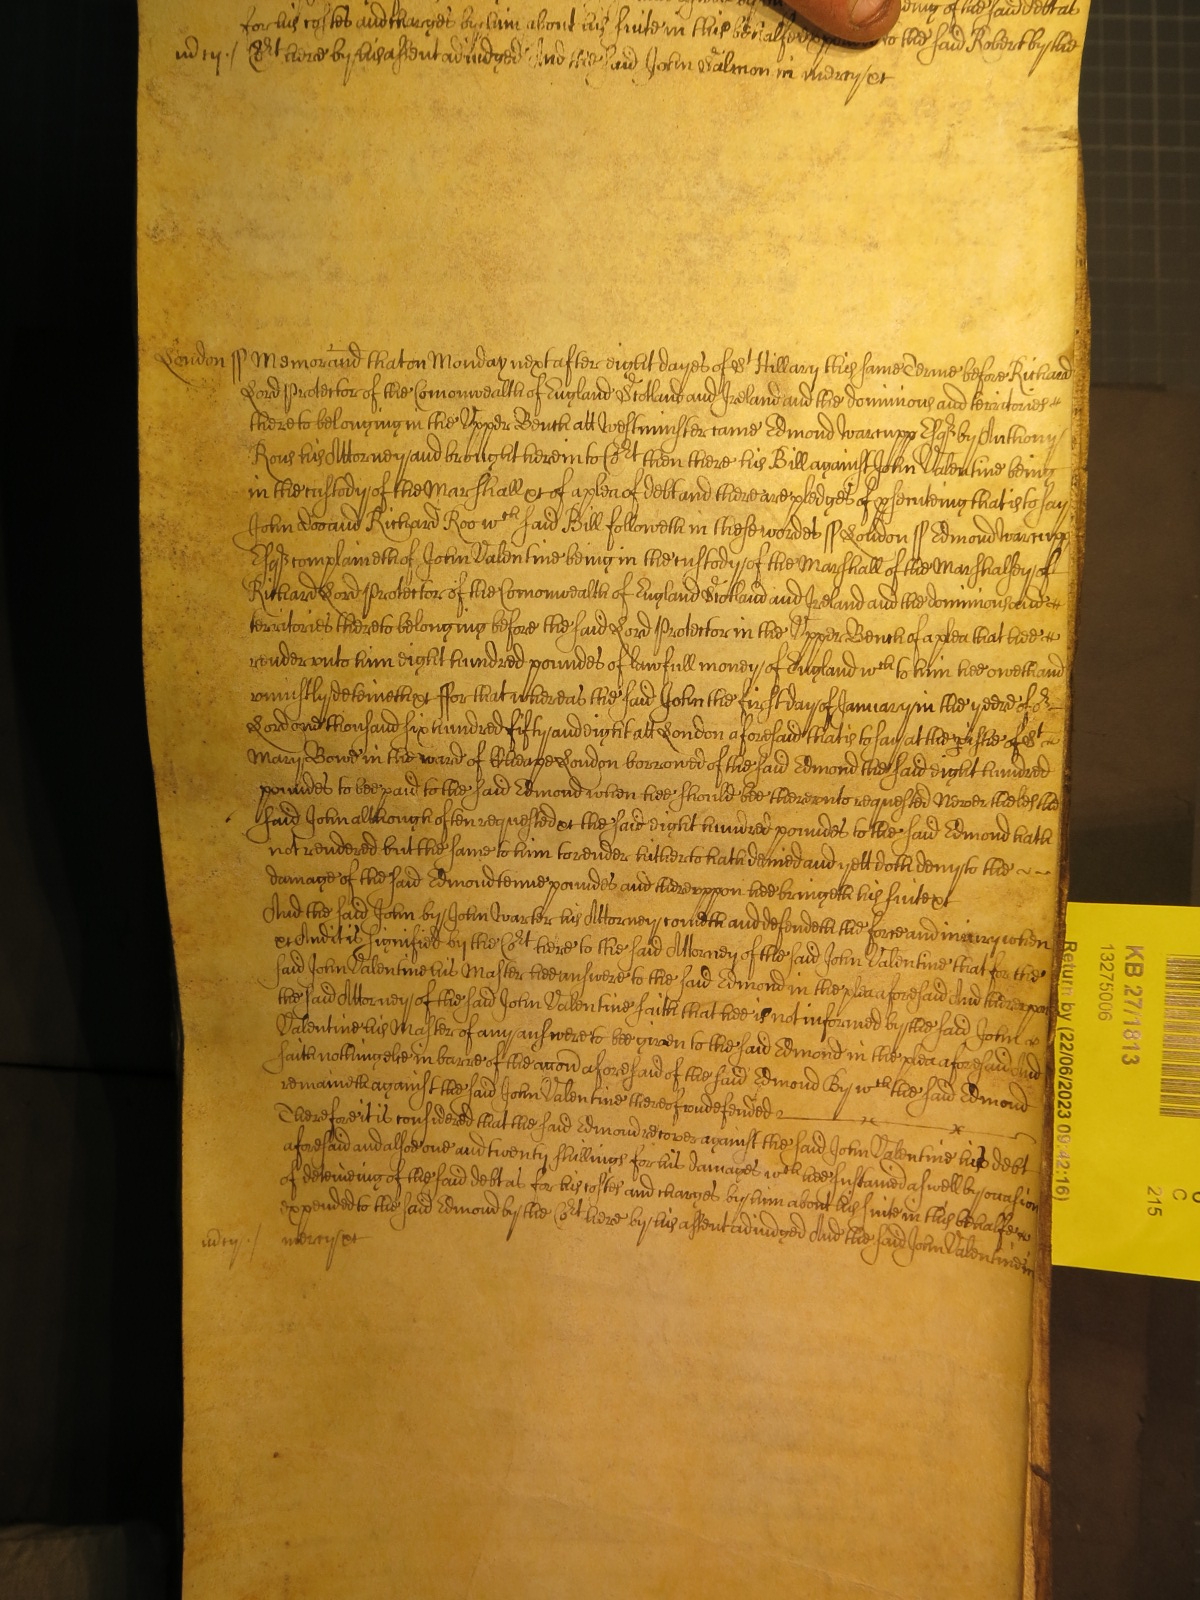 ding of the said debt as
for his costes and charges by him about his suite in this behalfe to the said Robert by the
Cort here by his assent adiudged And the said John Salmon in mercy &c
London ss Memorand that on Monday next after eight dayes of St Hillary this same Terme before Richard
Lord Protector of the Comonwealth of England Scotland and Ireland and the dominions and territories
thereto belonging in the Upper Bench att Westminster came Edmond Warcupp Esqr by Anthony
Rous his Attorney and brought here into Cort then there his Bill against John Valentine being
in the custody of the Marshall &c of a plea of debt and there are pledges of psecuteing that is to say
John Doo and Richard Roo wch said Bill followeth in these wordes ss London ss Edmond Warcupp
Esqr complaineth of John Valentine being in the custody of the Marshall of the Marshalsey of
Richard Lord Protector of the Comonwealth of England Scotland and Ireland and the dominions and
territories thereto belonging before the said Lord Protector in the Upper Bench of a plea that hee
render unto him eight hundred poundes of lawfull money of England wch to him hee oweth and
uniustly deteineth &c ffor that whereas the said John the first day of January in the yeere of or
Lord one thousand six hundred fifty and eight att London aforesaid that is to say at the pishe of St
Mary Bowe in the ward of Cheape London borrowed of the said Edmond the said eight hundred
poundes to bee paid to the said Edmond when hee should bee thereunto requested Neverthelesse the
said John although often requested &c the said eight hundred poundes to the said Edmond hath
not rendered but the same to him to render hitherto hath denied and yett doth deny to the
damage of the said Edmond tenne poundes and thereuppon hee bringeth his suite &c
And the said John by John Warter his Attorney cometh and defendeth the force and iniury when
&c And it is signified by the Cort here to the said Attorney of the said John Valentine that for the
said John Valentine his Master hee answere to the said Edmond in the plea aforesaid And thereupon
the said Attorney of the said John Valentine saith that hee is not informed by the said John
Valentine his Master of any answere to bee given to the said Edmond in the plea aforesaid And
saith nothing else in barre of the accon aforesaid of the said Edmond By wch the said Edmond
remaineth against the said John Valentine thereof undefended
Therefore it is considered that the said Edmond recover against the said John Valentine his debt
aforesaid and alsoe one and twenty shillings for his damages wch hee sustained aswell by occasion
of deteineing of the said debt as for his costes and charges by him about his suite in this behalfe
expended to the said Edmond by the Cort here by his assent adiudged And the said John Valentine in
mercy &c
KB 27/1813
13275006
Return by (22/06/2023 09:42:16)
C
215